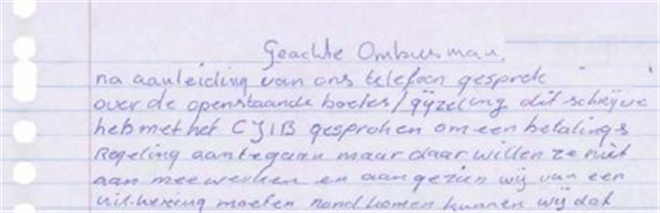 Geachte Ombusman,
na aanleiding van ons telefoon gesprek
over de openstaande boetes/gijzeling dit schrijve
heb met het CJIB gesproken om een betalings
Regeling aantegaan maar daar willen ze niet
aan mee werken en aangezien wij van een
uitkering moeten rond komen kunnen wij dat